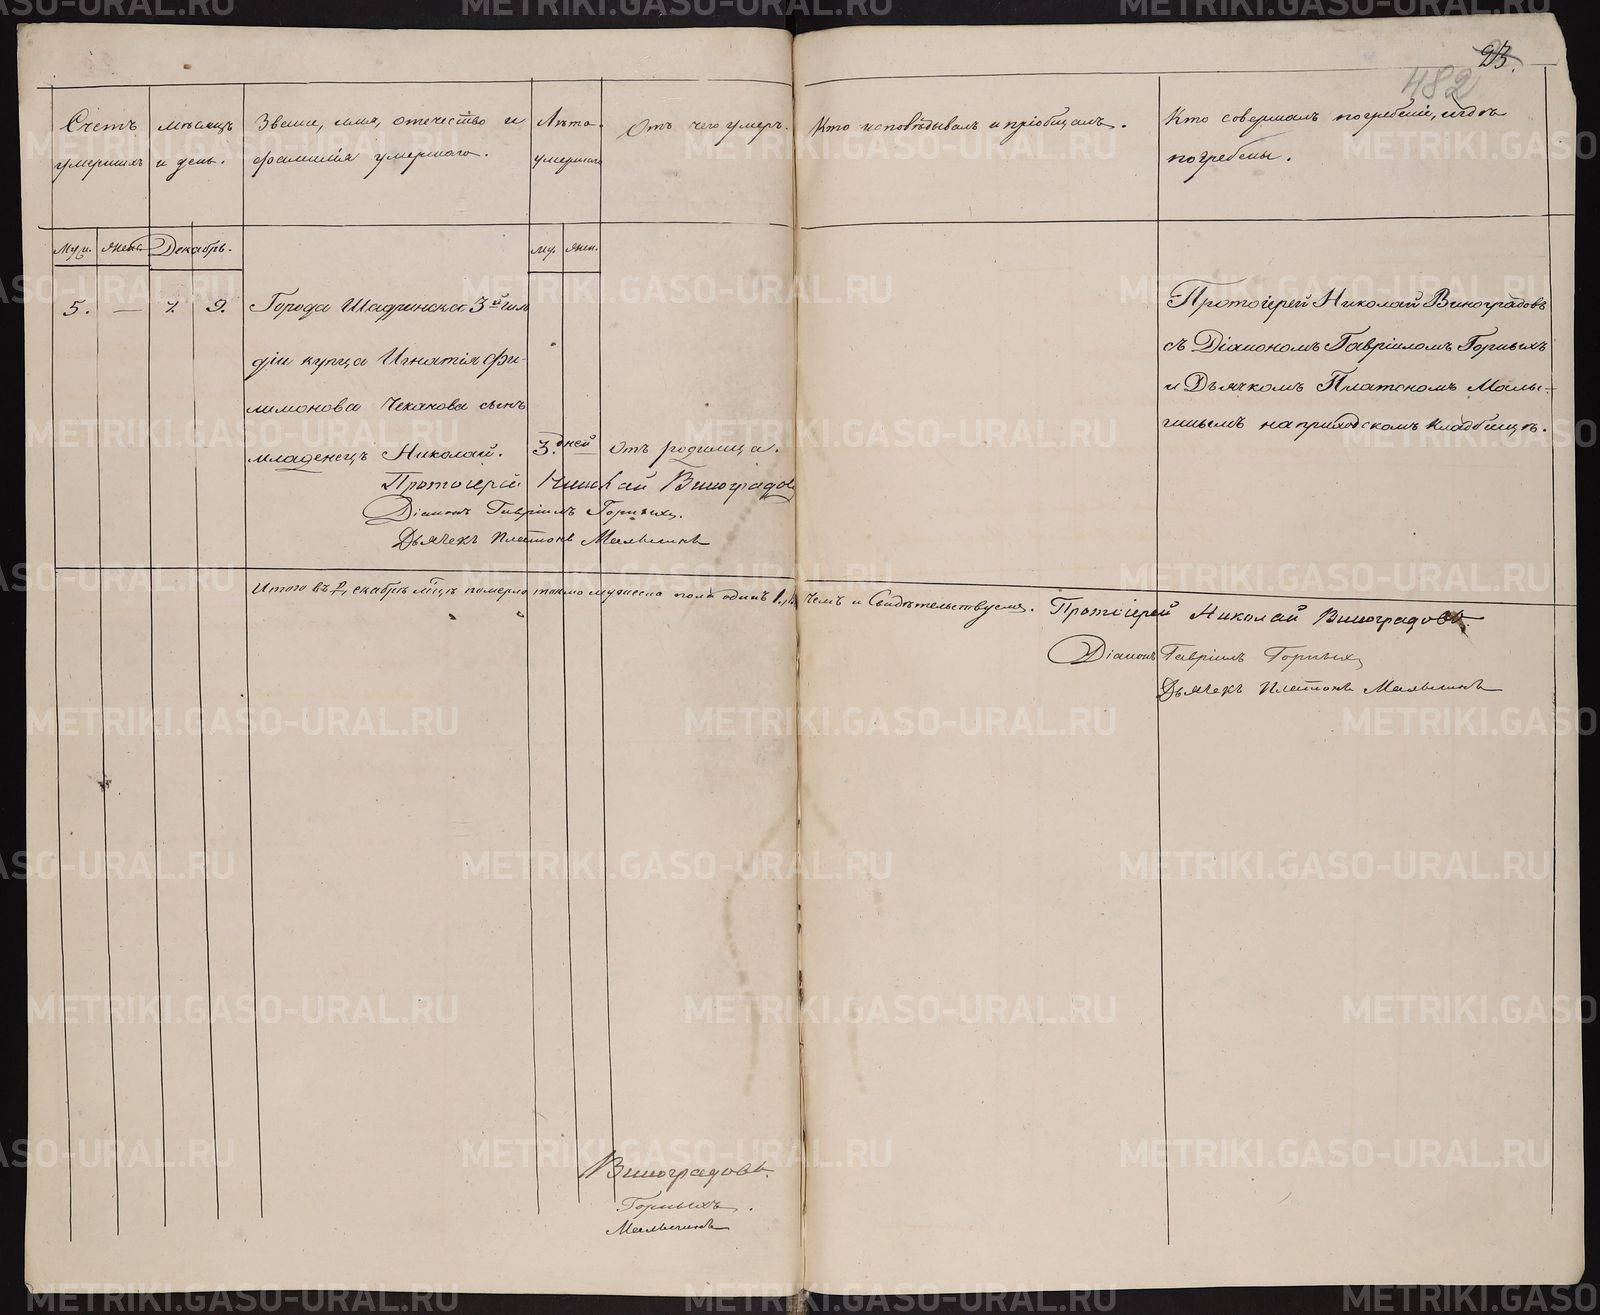 23.
482
Счетъ умершихъ
мѣсяцъ и день.
Званіе, имя, отечество и фамилія умершаго.
Лѣта умершаго
Отъ чего умеръ.
Кто исповѣдывалъ и пріобщалъ.
Кто совершалъ погребеніе, и гдѣ погребены.
Муж. Женъ. Декабрь. Му. Жен.
5. — 7. 9. Города Шадринска 3й гиль
діи купца Игнатія Фи-
лимонова Чеканова сынъ
младенецъ Николай. 3. дней Отъ родимца.
Протоіерей Николай Виноградовъ
съ Діакономъ Гавріиломъ Горныхъ
и Дьячкомъ Платономъ Малы-
гинымъ на приходскомъ кладбищѣ.
Протоіерей Николай Виноградовъ
Діаконъ Гавріилъ Горныхъ.
Дьячекъ Платонъ Малыгинъ
Итого въ Декабрѣ м-цѣ померло токмо мужеска пола одинъ 1., въ чемъ и Свидѣтельствуемъ. Протоіерей Николай Виноградовъ.
Діаконъ Гавріилъ Горныхъ
Дьячекъ Платонъ Малыгинъ
Виноградовъ.
Горныхъ.
Малыгинъ
METRIKI.GASO-URAL.RU